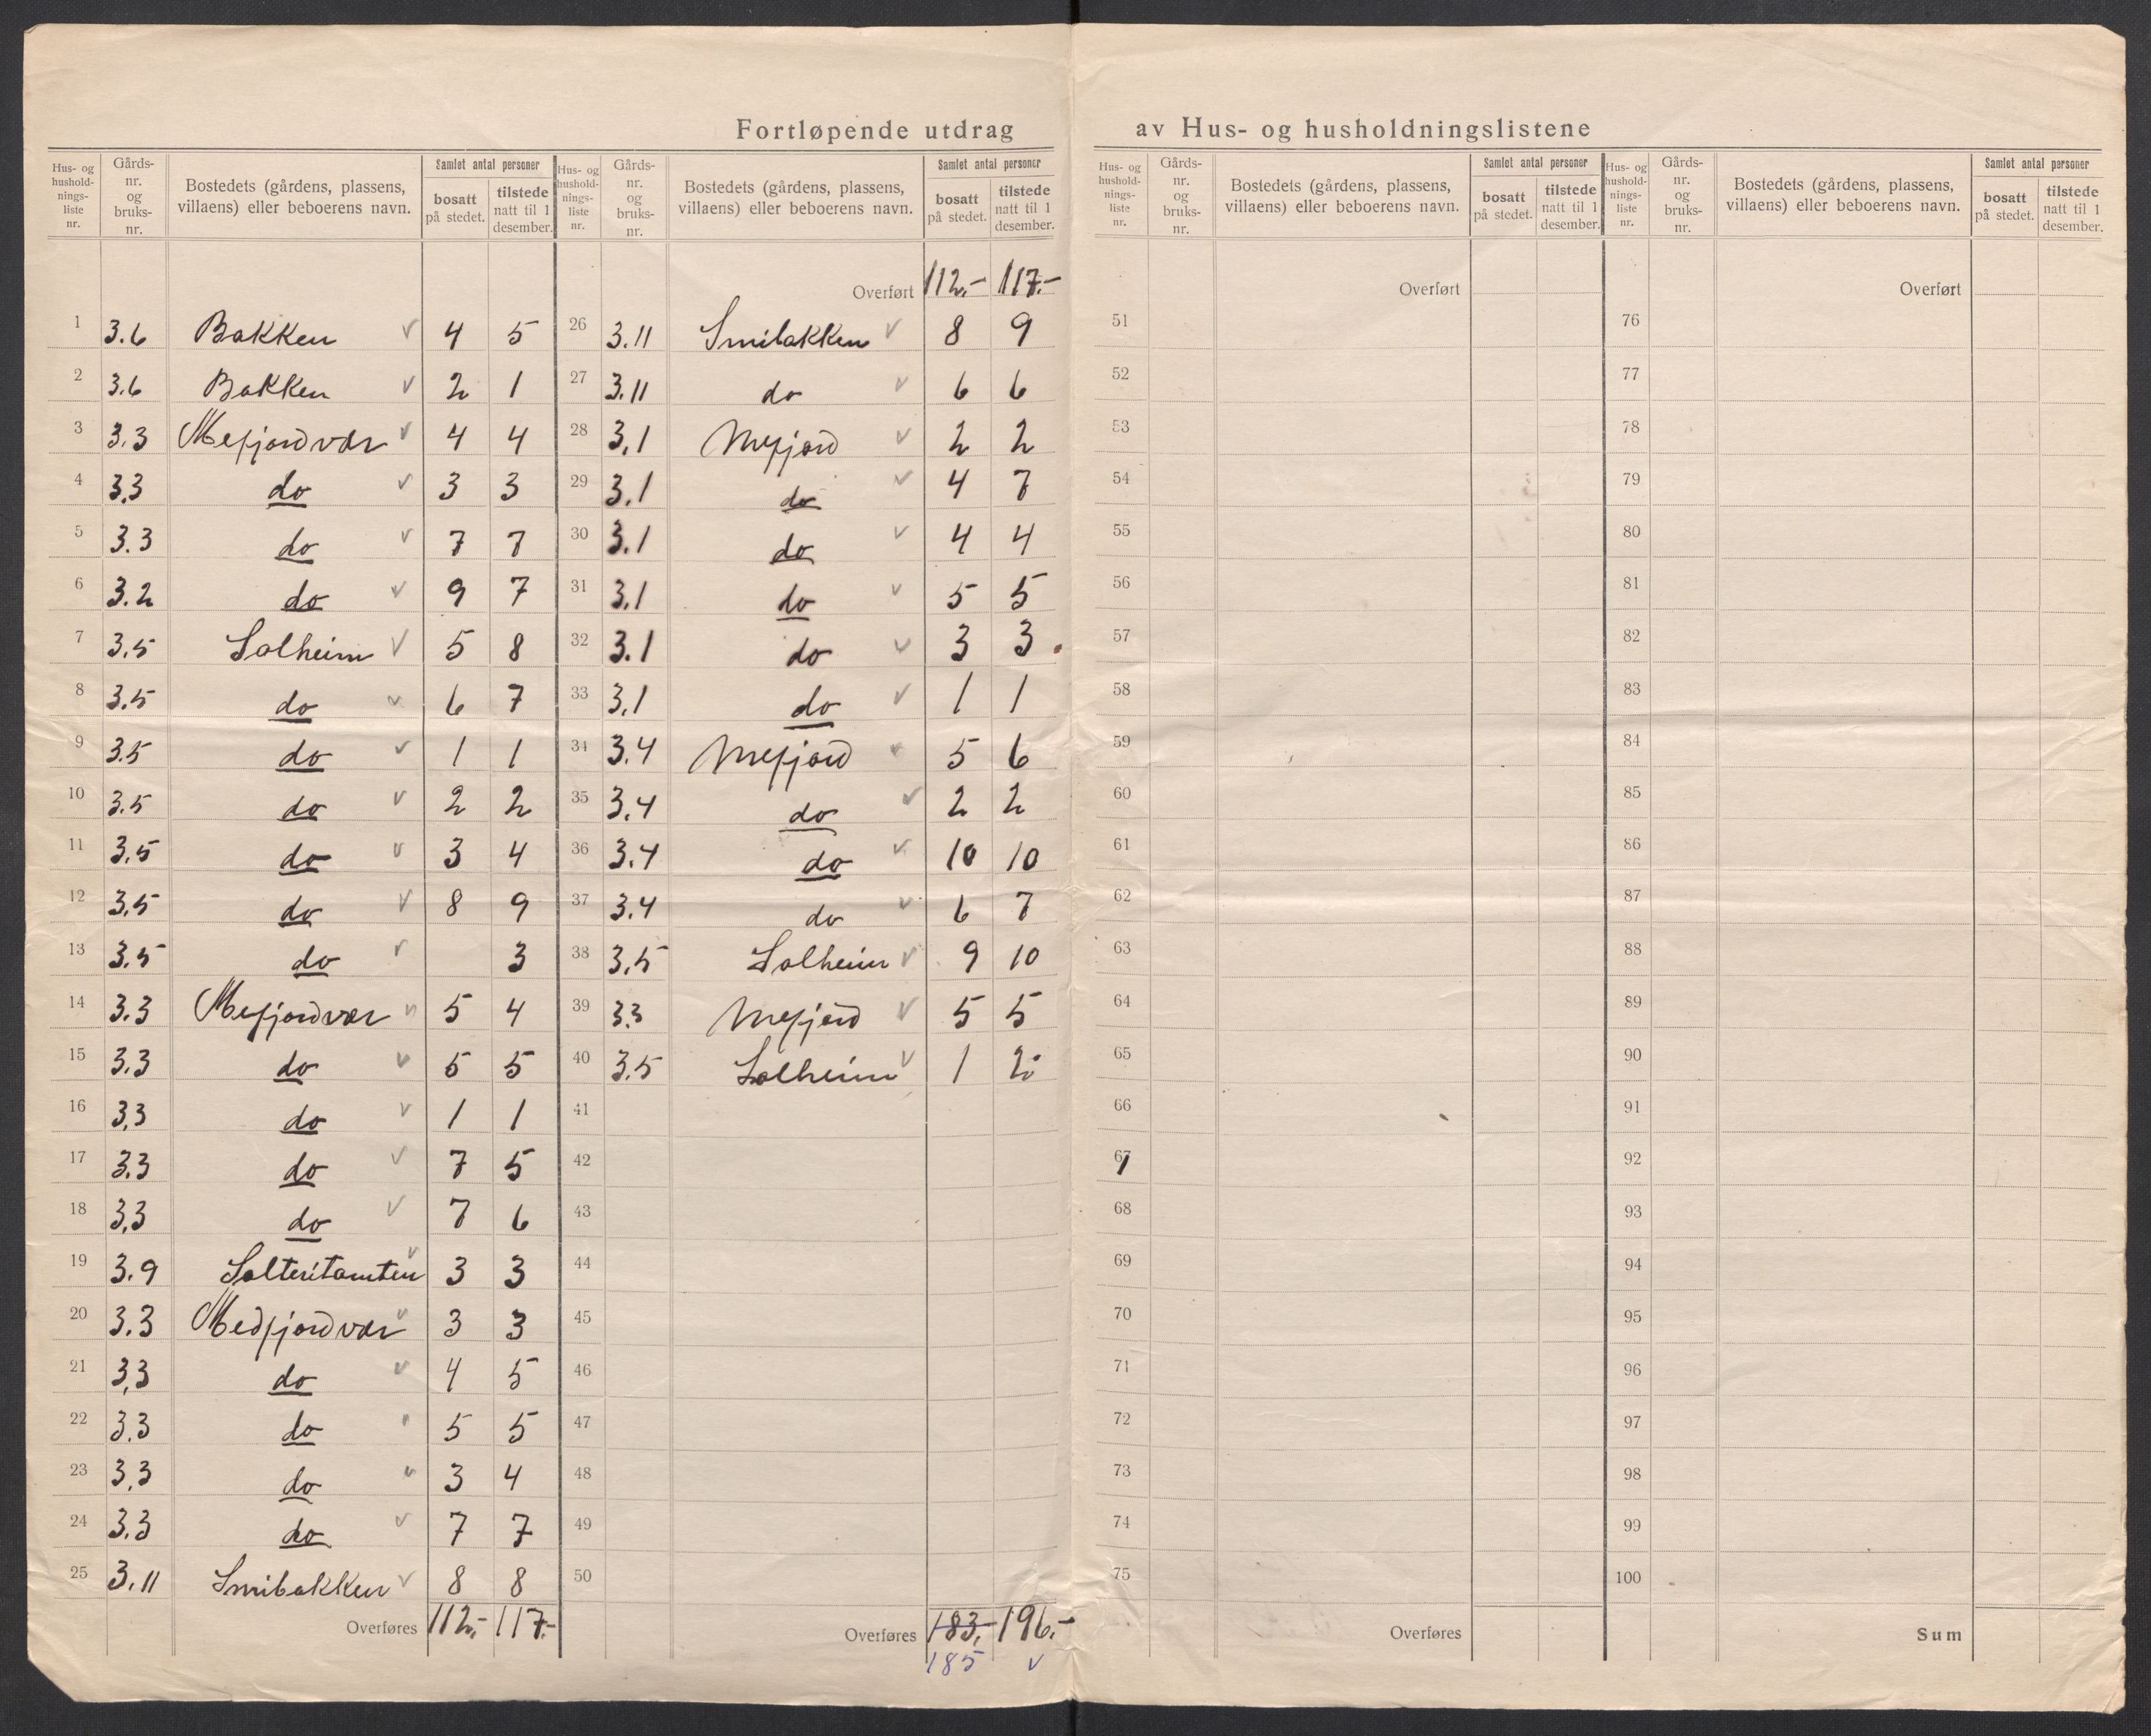 Fortløpende utdrag av Hus- og husholdningslistene
Hus- og hushold-nings-liste nr. Gårds-nr. og bruks-nr. Bostedets (gårdens, plassens, villaens) eller beboerens navn. Samlet antal personer bosatt på stedet. tilstede natt til 1 desember.
1 3.6 Bakken v 4 5
2 3.6 Bakken v 2 1
3 3.3 Mefjordvær v 4 4
4 3.3 do v 3 3
5 3.3 do v 7 7
6 3.2 do v 9 7
7 3.5 Solheim v 5 8
8 3.5 do v 6 7
9 3.5 do v 1 1
10 3.5 do v 2 2
11 3.5 do v 3 4
12 3.5 do v 8 9
13 3.5 do v 3
14 3.3 Mefjordvær v 5 4
15 3.3 do v 5 5
16 3.3 do v 1 1
17 3.3 do v 7 5
18 3.3 do v 7 6
19 3.9 Salteritomten v 3 3
20 3.3 Medfjordvær v 3 3
21 3.3 do v 4 5
22 3.3 do v 5 5
23 3.3 do v 3 4
24 3.3 do v 7 7
25 3.11 Smibakken v 8 8
Overføres 112,- 117.-
Hus- og hushold-nings-liste nr. Gårds-nr. og bruks-nr. Bostedets (gårdens, plassens, villaens) eller beboerens navn. Samlet antal personer bosatt på stedet. tilstede natt til 1 desember.
Overført 112,- 117.-
26 3.11 Smibakken v 8 9
27 3.11 do v 6 6
28 3.1 Mefjord v 2 2
29 3.1 do v 4 7
30 3.1 do v 4 4
31 3.1 do v 5 5
32 3.1 do v 3 3
33 3.1 do v 1 1
34 3.4 Mefjord v 5 6
35 3.4 do v 2 2
36 3.4 do v 10 10
37 3.4 do v 6 7
38 3.5 Solheim v 9 10
39 3.3 Mefjord v 5 5
40 3.5 Solheim v 1 2
41
42
43
44
45
46
47
48
49
50
Overføres 183,- 196.-
185 v
Hus- og hushold-nings-liste nr. Gårds-nr. og bruks-nr. Bostedets (gårdens, plassens, villaens) eller beboerens navn. Samlet antal personer bosatt på stedet. tilstede natt til 1 desember.
Overført
51
52
53
54
55
56
57
58
59
60
61
62
63
64
65
66
67
68
69
70
71
72
73
74
75
Overføres
Hus- og hushold-nings-liste nr. Gårds-nr. og bruks-nr. Bostedets (gårdens, plassens, villaens) eller beboerens navn. Samlet antal personer bosatt på stedet. tilstede natt til 1 desember.
Overført
76
77
78
79
80
81
82
83
84
85
86
87
88
89
90
91
92
93
94
95
96
97
98
99
100
Sum